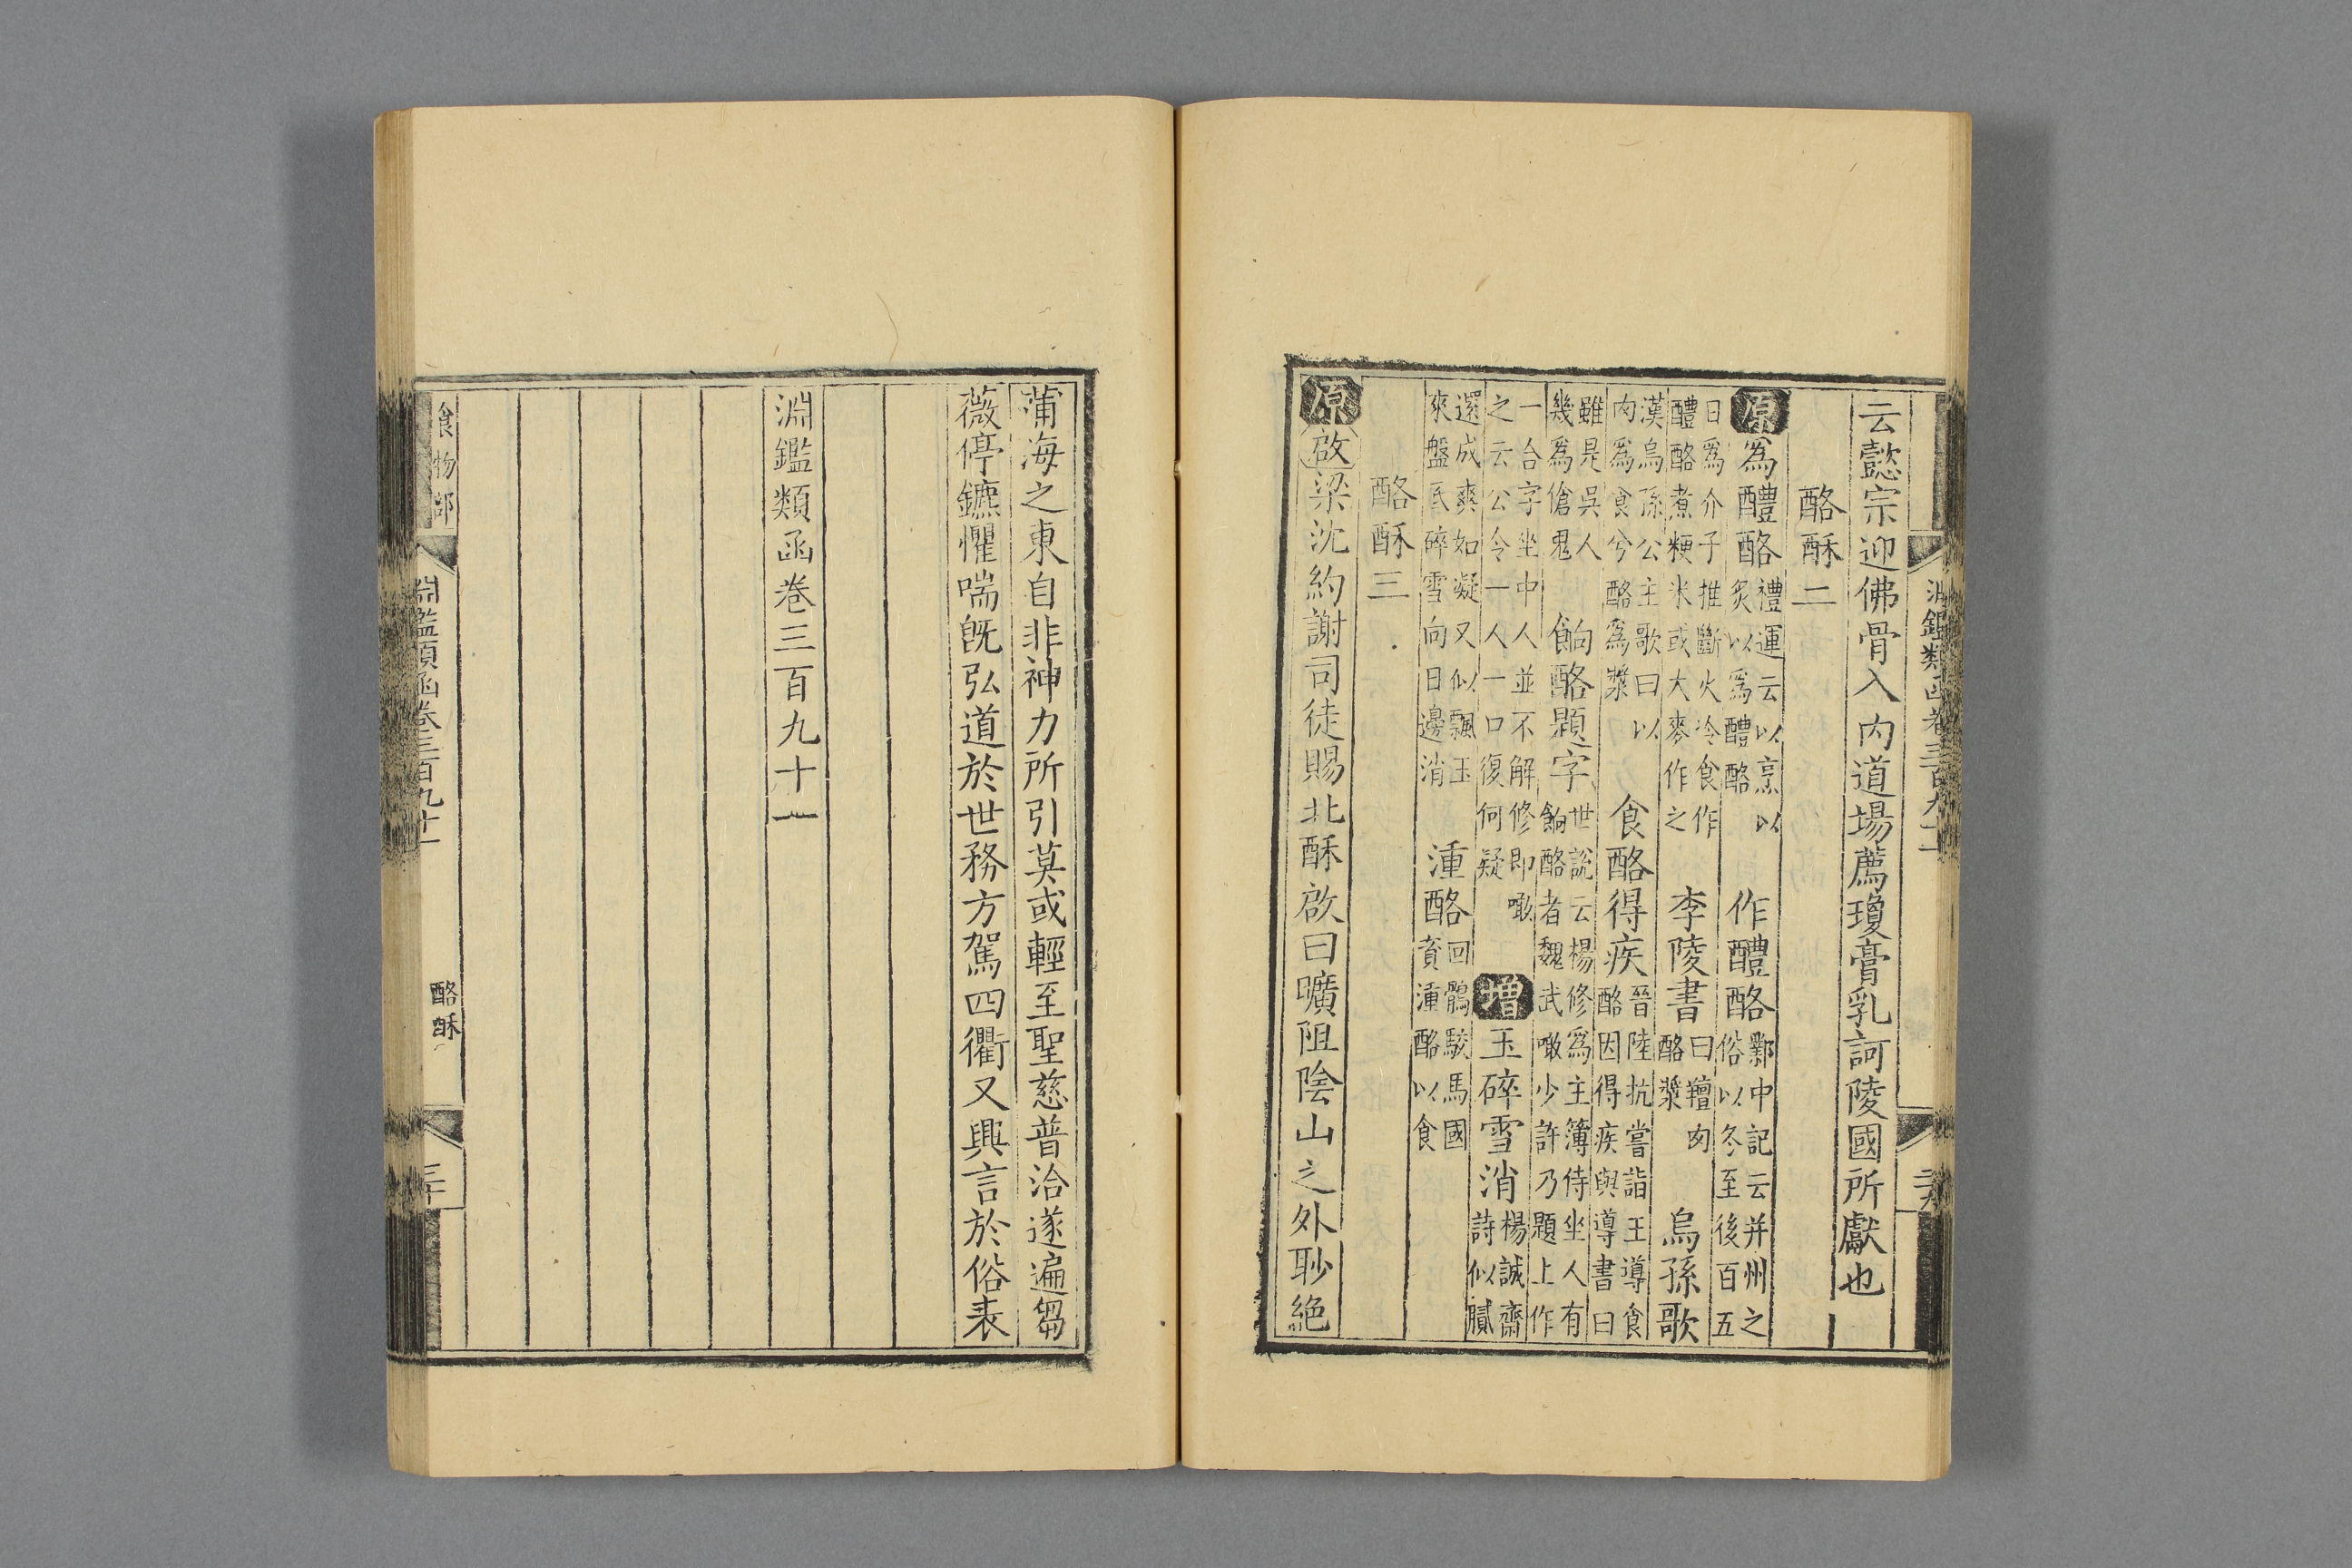 淵鑑類函卷三百九十一
云懿宗迎佛骨入內道場薦瓊膏乳訶陵國所獻也
酪酥二
原爲醴酪禮運云以烹以炙以爲醴酪作醴酪鄴中記云并州之俗以冬至後百五
日爲介子推斷火冷食作醴酪煮粳米或大麥作之李陵書曰羶肉酪漿烏孫歌
漢烏孫公主歌曰以肉爲食兮酪爲漿食酪得疾晉陸抗嘗詣王導食酪因得疾與導書曰
雖是吳人幾爲傖鬼餉酪題字世說云楊修爲主簿侍坐人有餉酪者魏武噉少許乃題上作
一合字坐中人並不解修即噉之云公令一人一口復何疑增玉碎雪消楊誠齋詩似膩
還成爽如凝又似飄玉來盤底碎雪向日邊消湩酪回鶻駮馬國賫湩酪以食
酪酥三
原啟梁沈約謝司徒賜北酥啟曰曠阻陰山之外眇絕
蒲海之東自非神力所引莫或輕至聖慈普洽遂遍芻
薇停鑣懼喘旣弘道於世務方駕四衢又興言於俗表
淵鑑類函卷三百九十一
食物部
淵鑑類函卷三百九十一
酪酥
三十